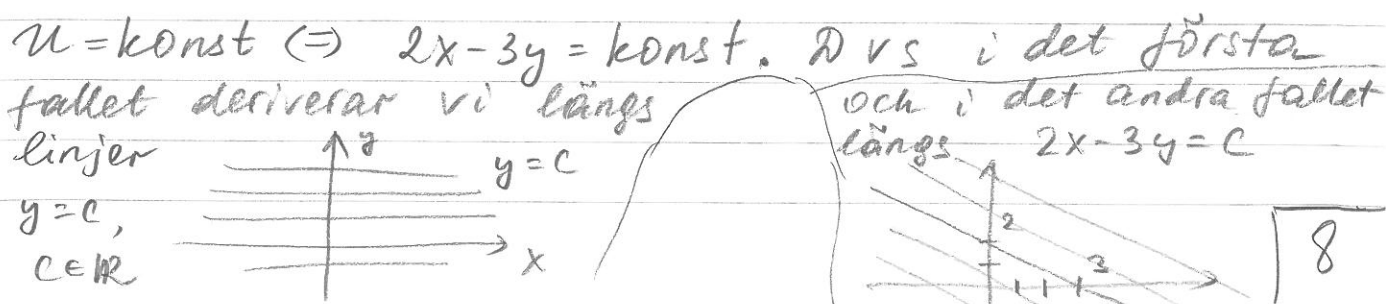 u = konst ⇔ 2x - 3y = konst. Dvs i det första
fallet deriverar vi längs
linjer
y = C,
C ∈ ℝ
y
y = C
x
och i det andra fallet
längs 2x - 3y = C
2
3
8